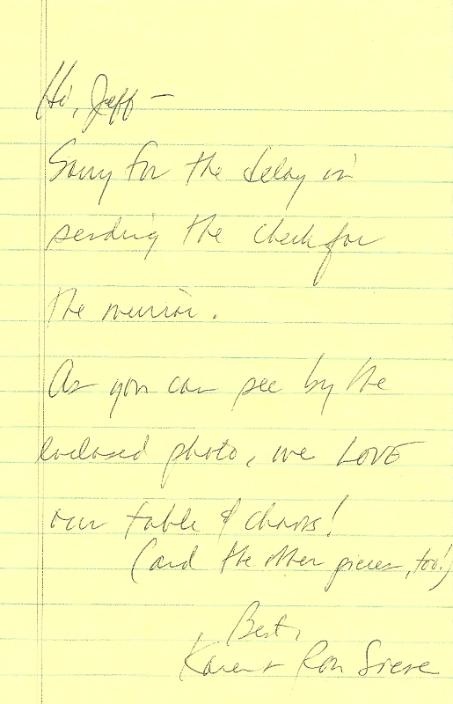 Hi, Jeff —
Sorry for the delay in
sending the check for
the mirror.
As you can see by the
enclosed photo, we LOVE
our table & chairs!
(and the other pieces, too!)
Best,
Karen + Ron